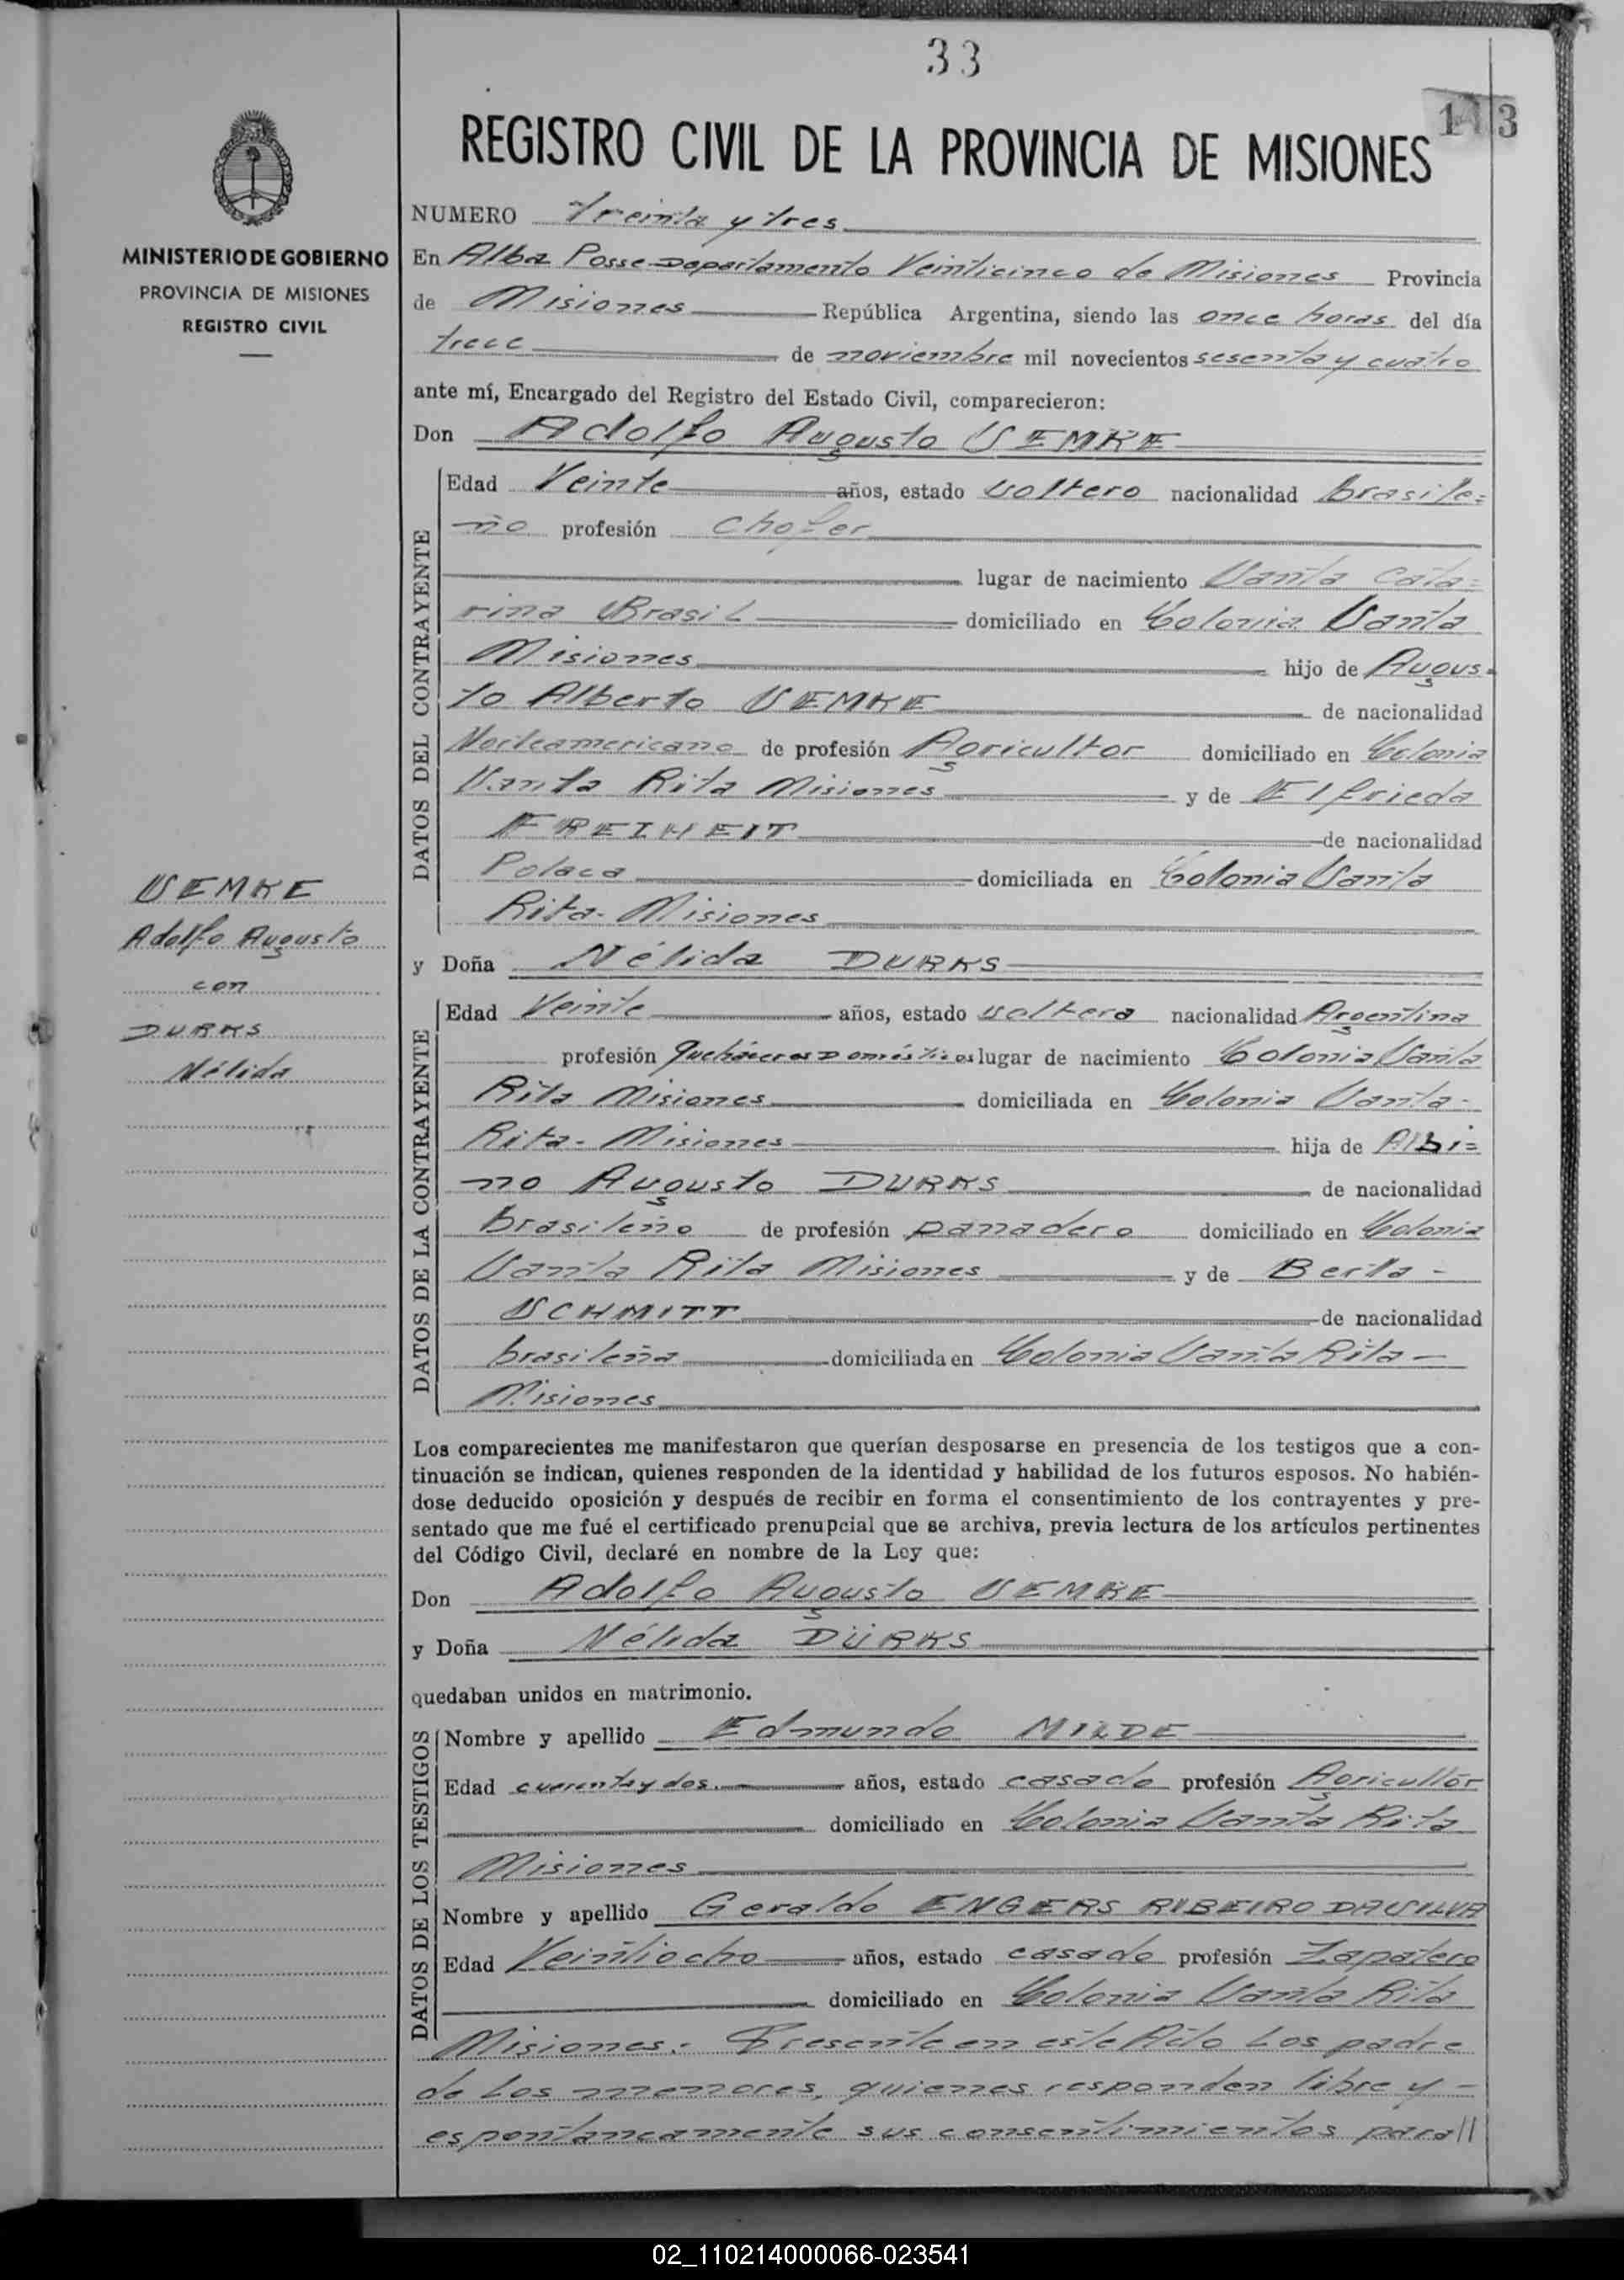 33
143
REGISTRO CIVIL DE LA PROVINCIA DE MISIONES
MINISTERIO DE GOBIERNO
PROVINCIA DE MISIONES
REGISTRO CIVIL
NUMERO treinta y tres
En Alba Posse Departamento Veinticinco de Misiones Provincia
de Misiones República Argentina, siendo las once horas del día
trece de noviembre mil novecientos sesenta y cuatro
ante mí, Encargado del Registro del Estado Civil, comparecieron:
Don Adolfo Augusto SEMKE
DATOS DEL CONTRAYENTE
Edad Veinte años, estado soltero nacionalidad brasile=
ño profesión chofer
lugar de nacimiento Santa Cata=
rina Brasil domiciliado en Colonia Santa
Misiones hijo de Augus=
to Alberto SEMKE de nacionalidad
Norteamericano de profesión Agricultor domiciliado en Colonia
Santa Rita Misiones y de Elfrieda
FREIHEIT de nacionalidad
Polaca domiciliada en Colonia Santa
Rita- Misiones
SEMKE
Adolfo Augusto
con
DURKS
Nélida
y Doña Nélida DURKS
DATOS DE LA CONTRAYENTE
Edad Veinte años, estado soltera nacionalidad Argentina
profesión Quehaceres Domésticos lugar de nacimiento Colonia Santa
Rita Misiones domiciliada en Colonia Santa-
Rita- Misiones hija de Albi=
no Augusto DURKS de nacionalidad
brasileño de profesión panadero domiciliado en Colonia
Santa Rita Misiones y de Berta-
SCHMITT de nacionalidad
brasileña domiciliada en Colonia Santa Rita-
Misiones
Los comparecientes me manifestaron que querían desposarse en presencia de los testigos que a con-
tinuación se indican, quienes responden de la identidad y habilidad de los futuros esposos. No habién-
dose deducido oposición y después de recibir en forma el consentimiento de los contrayentes y pre-
sentado que me fué el certificado prenupcial que se archiva, previa lectura de los artículos pertinentes
del Código Civil, declaré en nombre de la Ley que:
Don Adolfo Augusto SEMKE
y Doña Nélida DÜRKS
quedaban unidos en matrimonio.
DATOS DE LOS TESTIGOS
Nombre y apellido Edmundo MILDE
Edad cuarenta y dos.- años, estado casado profesión Agricultor
domiciliado en Colonia Santa Rita
Misiones
Nombre y apellido Geraldo ENGERS RIBEIRO DA SILVA
Edad Veintiocho años, estado casado profesión Zapatero
domiciliado en Colonia Santa Rita
Misiones.- Presente en este Acto Los padre
de Los menores, quienes responden libre y-
espontaneamente sus consentimientos para//
02_110214000066-023541